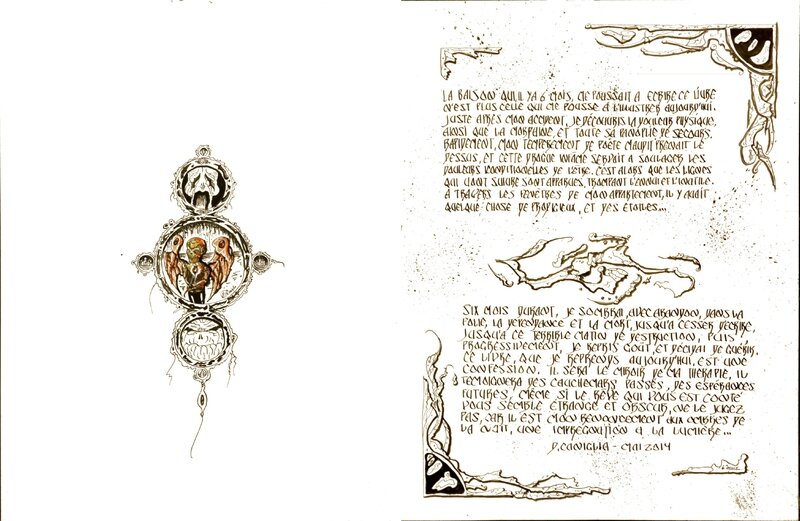 LA RAISON QU'IL Y A 6 MOIS, ME POUSSAIT A ECRIRE CE LIVRE
N'EST PLUS CELLE QUI ME POUSSE A L'ILLUSTRER AUJOURD'HUI.
JUSTE APRES MON ACCIDENT, JE DECOUVRIS LA DOULEUR PHYSIQUE,
AINSI QUE LA MORPHINE, ET TOUTE SA PANOPLIE DE SECOURS.
RAPIDEMENT, MON TEMPEREMENT DE POETE MAUDIT PRENAIT LE
DESSUS, ET CETTE DROGUE INFAME SERVAIT A SOULAGER LES
DOULEURS INCONDITIONELLES DE L'ETRE. C'EST ALORS QUE LES LIGNES
QUI VONT SUIVRE SONT APPARUES, TROMPANT L'ENNUI ET L'INUTILE.
A TRAVERS LES FENETRES DE MON APPARTEMENT, IL Y AVAIT
QUELQUE CHOSE DE PRODIGIEUX, ET DES ETOILES...
SIX MOIS DURANT, JE SOMBRAI, AVEC ABANDON, DANS LA
FOLIE, LA DEPENDANCE ET LA MORT, JUSQU'A CESSER D'ECRIRE,
JUSQU'A CE TERRIBLE MATIN DE DESTRUCTION, PUIS,
PROGRESSIVEMENT, JE REPRIS GOUT, ET DECIDAI DE GUERIR.
CE LIVRE, QUE JE REPRENDS AUJOURD'HUI, EST UNE
CONFESSION. IL SERA LE MIROIR DE MA THERAPIE, IL
TEMOIGNERA DES CAUCHEMARS PASSES, DES ESPERANCES
FUTURES, MÊME SI LE RÊVE QUI VOUS EST CONTE
VOUS SEMBLE ETRANGE ET OBSCUR, NE LE JUGEZ
PAS, CAR IL EST MON RENONCEMENT AUX OMBRES DE
LA NUIT, UNE IMPREGNATION A LA LUMIERE...
D. CANIGLIA - MAI 2014